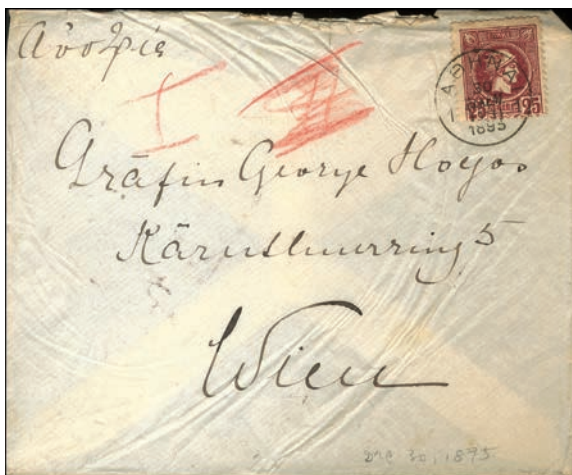 Αὐστρία
ΑΘΗΝΑΙ
30
1895
25
I
Gräfin George Hoyos
Kärnthnerring 5
Wien
Dec 30, 1895